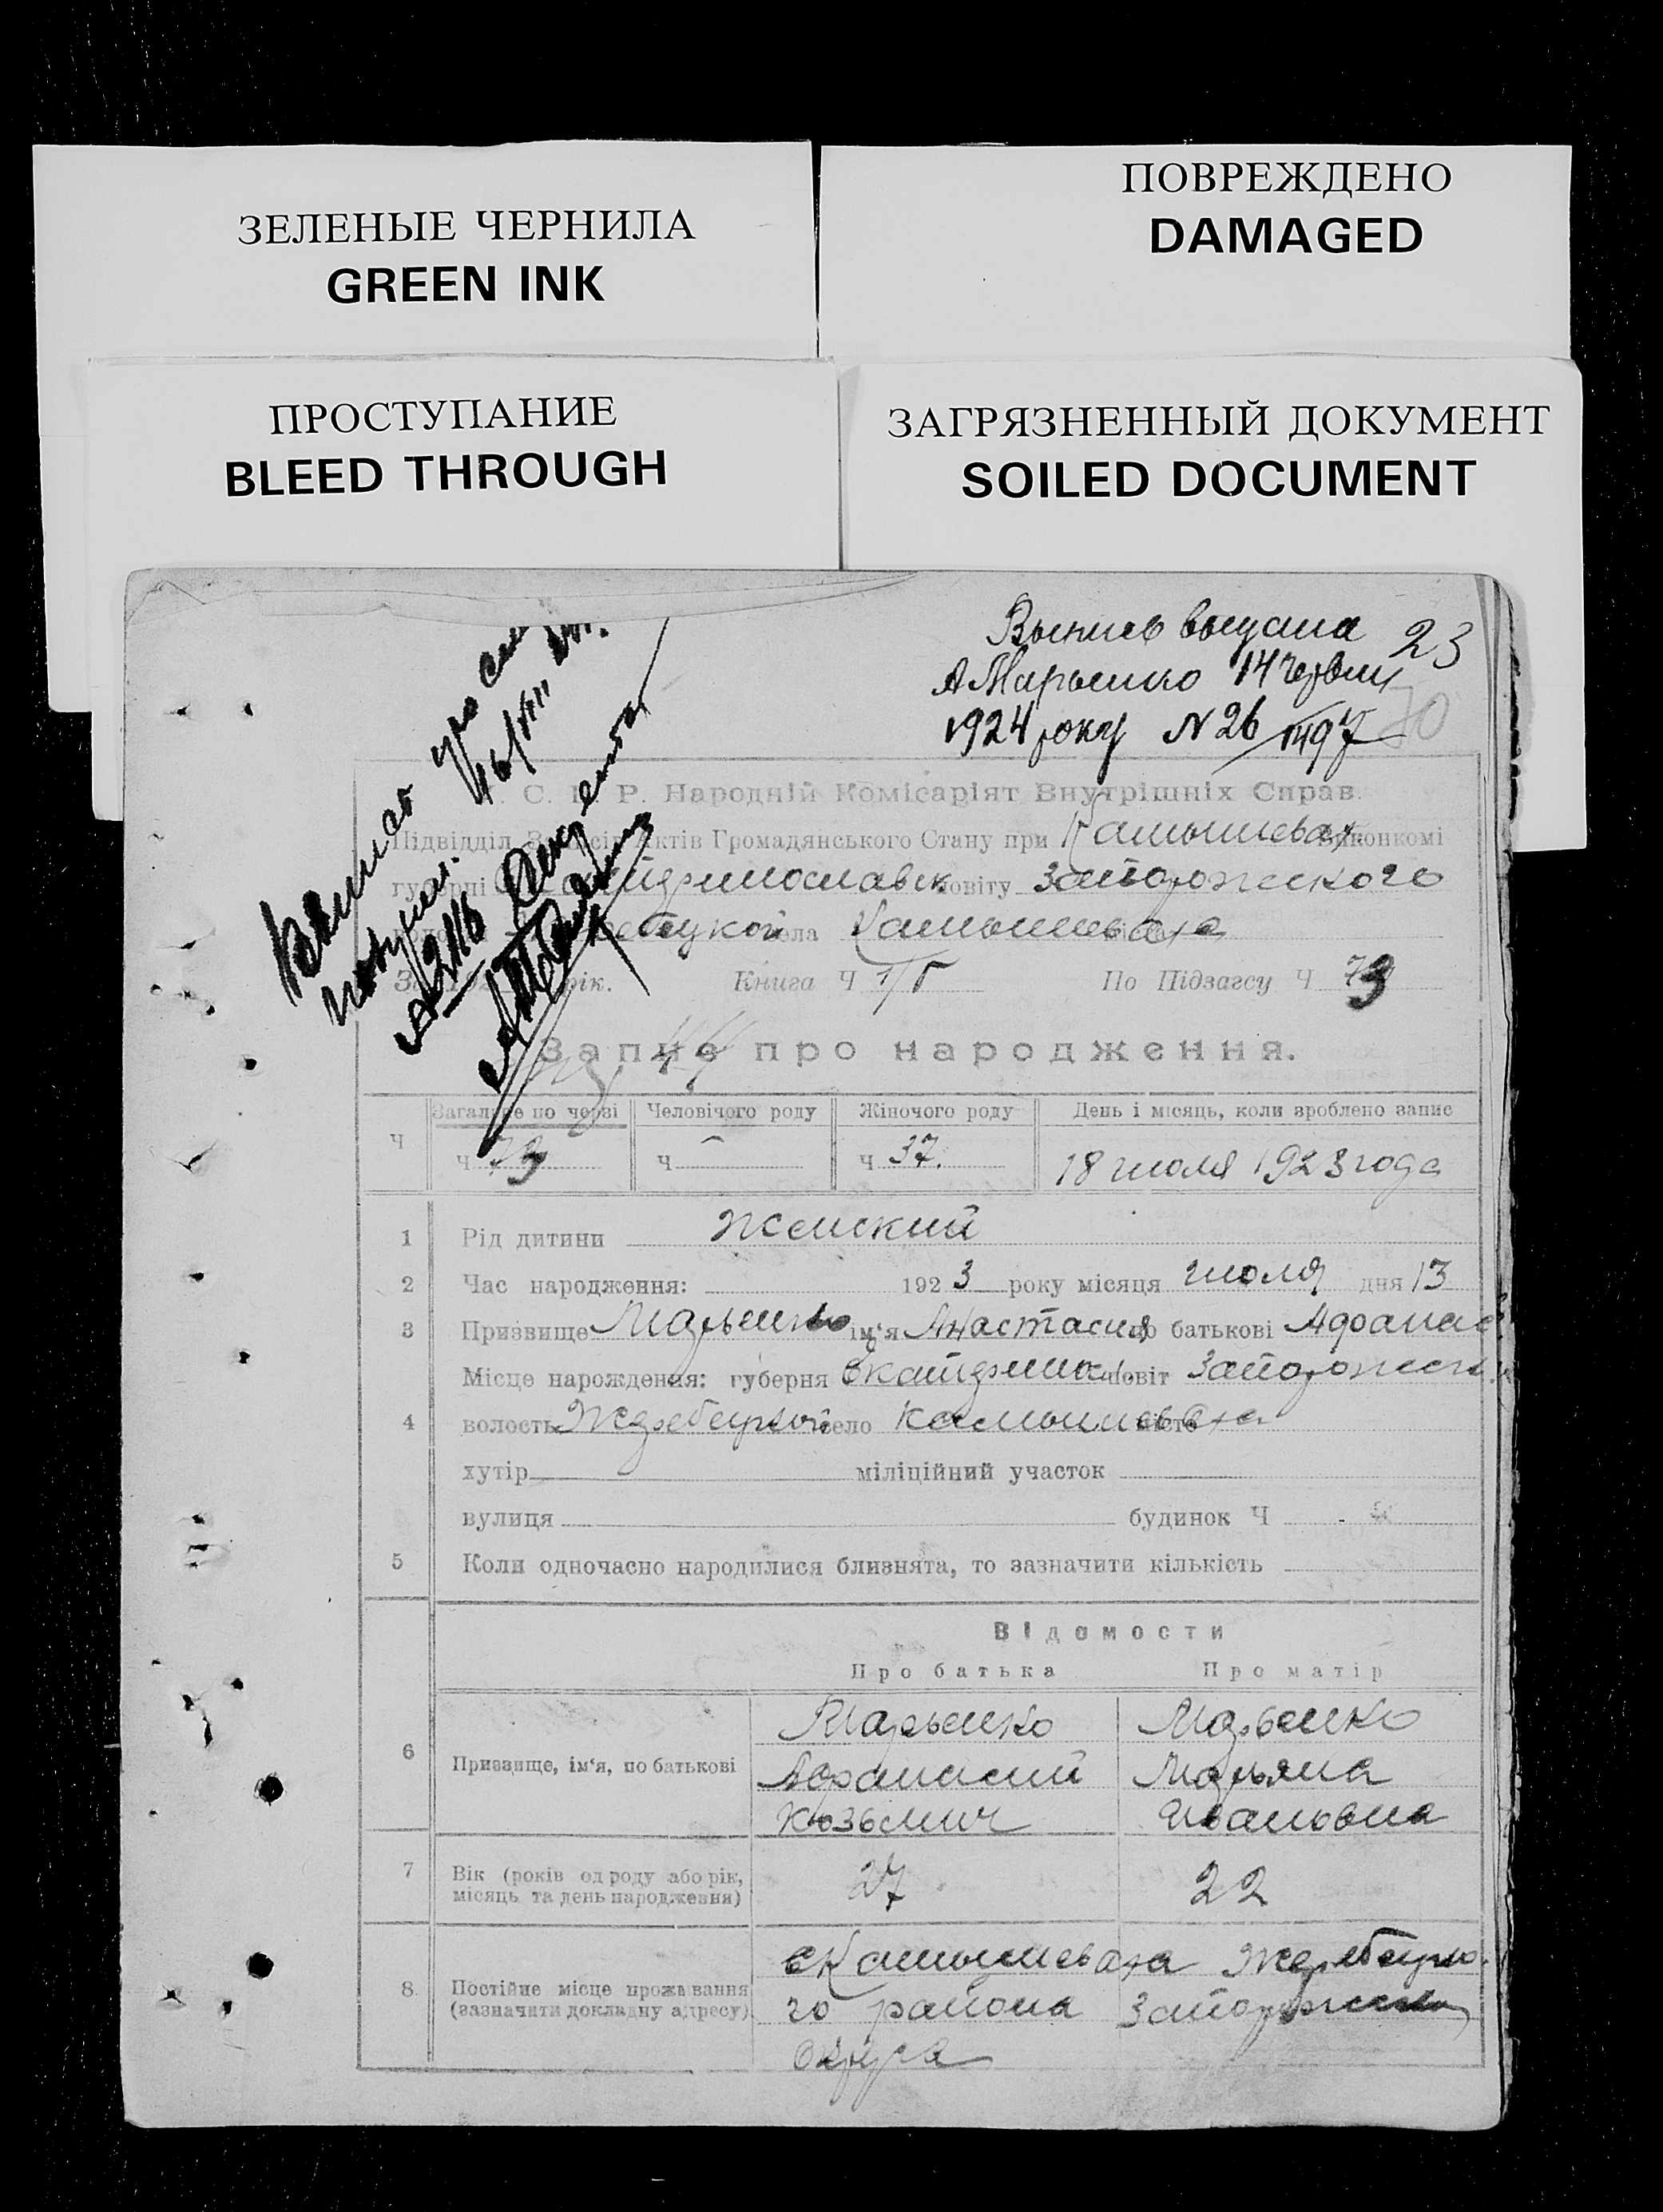 ЗЕЛЕНЫЕ ЧЕРНИЛА
GREEN INK
ПОВРЕЖДЕНО
DAMAGED
ПРОСТУПАНИЕ
BLEED THROUGH
ЗАГРЯЗНЕННЫЙ ДОКУМЕНТ
SOILED DOCUMENT
Выпись выдана 23
Марьенко 14 червня
1924 року N 26/1497
С. Р. Р. Народній Комісаріят Внутрішніх Справ.
Підвідділ Записів Актів Громадянського Стану при Камышевах. Виконкомі
губерні повіту Запорожского
села Камышеваха
рік. Книга Ч 1/Г По Підзагсу Ч 73
Запис про народження.
Загальне по черзі Человічого роду Жіночого роду День і місяць, коли зроблено запис
Ч ч 73 ч - ч 37. 18 июля 1923 года
1 Рід дитини женский
2 Час народження: 1923 року місяця июля дня 13
3 Призвище Марьенко ім'я Анастасия по батькові Афанас
Місце нарождення: губерня Екатеринос. повіт Запорожск.
4 волость Жеребецкой село Камышеваха місто
хутір міліційний участок
вулиця будинок Ч
5 Коли одночасно народилися близнята, то зазначити кількість
Відомости
Про батька Про матір
Марьенко Марьенко
6 Призвище, ім'я, по батькові Афанасий Марьяна
Козьмич Ивановна
7 Вік (років од роду або рік, місяць та день народження) 27 22
с Камышеваха Жеребецко-
8. Постійне місце прожавання (зазначити докладну адресу) го района Запорожского
Округа